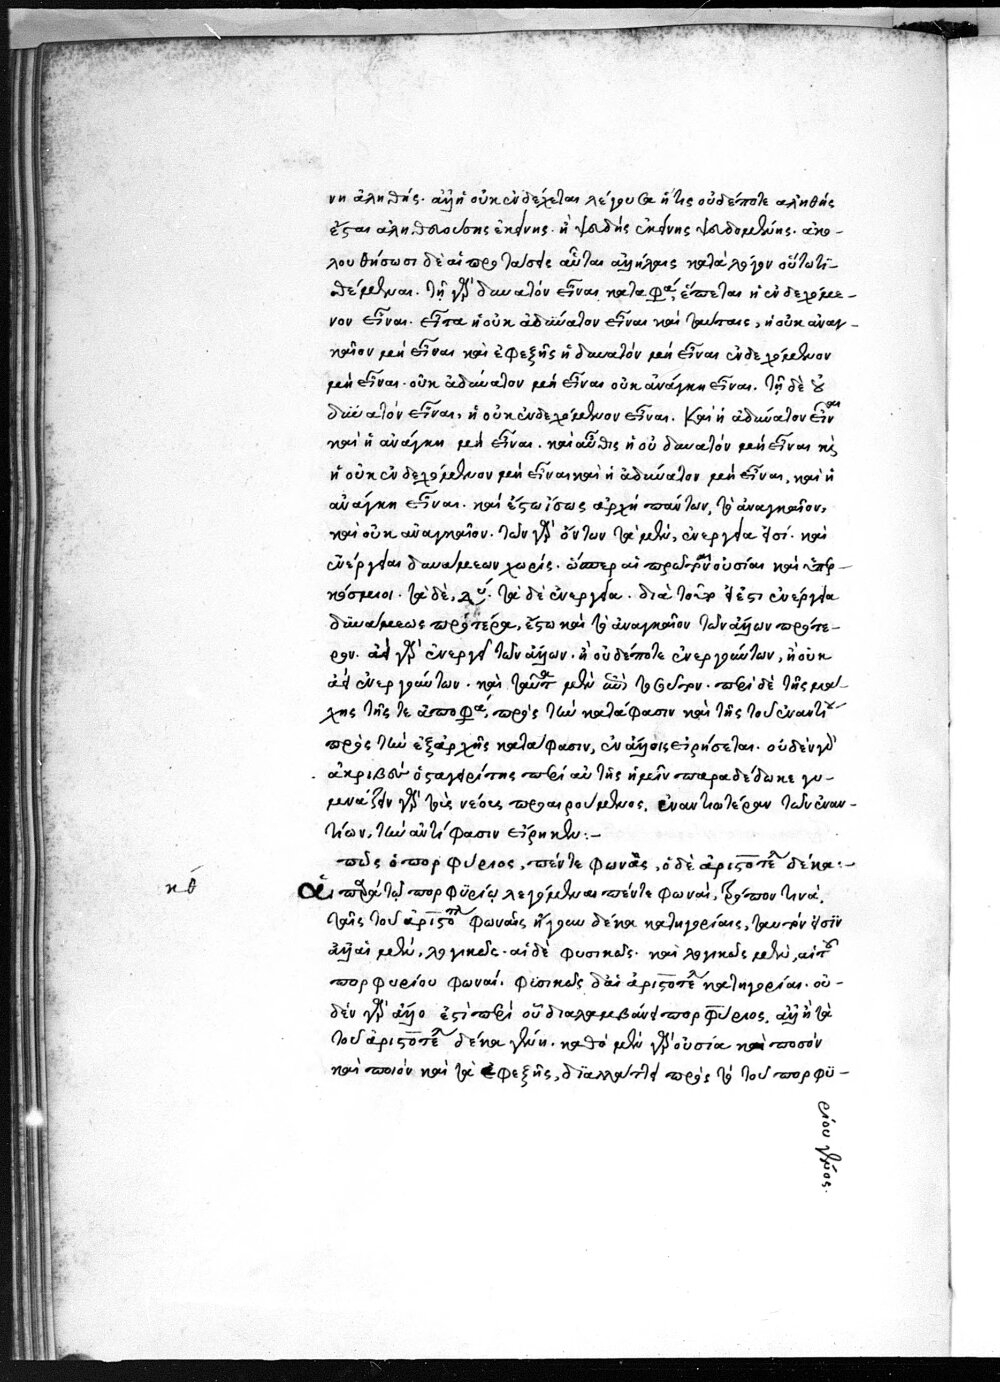 νη ἀληθής. ἀλλ' ἡ οὐκ ἐνδέχεται λέγουσα ἥτις οὐδέποτε ἀληθὴς
ἔσται ἀληθευούσης ἐκείνης. ἢ ψευδὴς ἐκείνης ψευδομένης. ἀκο-
λουθήσωσι δὲ αἱ προτάσεις αὗται ἀλλήλαις κατὰ λόγον οὕτω τι-
θέμεναι. τῇ γὰρ δυνατὸν εἶναι καταφά, ἕπεται ἡ ἐνδεχόμε-
νον εἶναι. εἶτα ἡ οὐκ ἀδύνατον εἶναι καὶ ταύταις, ἡ οὐκ ἀναγ-
καῖον μὴ εἶναι καὶ ἐφεξῆς ἡ δυνατὸν μὴ εἶναι ἐνδεχόμενον
μὴ εἶναι. οὐκ ἀδύνατον μὴ εἶναι οὐκ ἀνάγκη εἶναι. τῇ δὲ οὐ
δυνατὸν εἶναι, ἡ οὐκ ἐνδεχόμενον εἶναι. Καὶ ἡ ἀδύνατον εἶναι
καὶ ἡ ἀνάγκη μὴ εἶναι. καὶ αὖθις ἡ οὐ δυνατὸν μὴ εἶναι καὶ
ἡ οὐκ ἐνδεχόμενον μὴ εἶναι καὶ ἡ ἀδύνατον μὴ εἶναι, καὶ ἡ
ἀνάγκη εἶναι. καὶ ἔστω ἴσως ἀρχὴ πάντων, τὸ ἀναγκαῖον,
καὶ οὐκ ἀναγκαῖον. τῶν γὰρ ὄντων τὰ μὲν, ἐνέργεια ἐστί. καὶ
ἐνέργειαι δυνάμεων χωρίς. ὥσπερ αἱ πρῶται οὐσίαι καὶ ὑπερ-
κόσμιοι. τὰ δὲ, τὰ δὲ ἐνεργεία. διὰ τοῦτο ἐστι ἐνέργεια
δυνάμεως προτέρα, ἔστω καὶ τὸ ἀναγκαῖον τῶν ἄλλων πρότε-
ρον. ἀεὶ γὰρ ἐνεργεῖ τῶν ἄλλων. ἢ οὐδέποτε ἐνεργούντων, ἢ οὐκ
ἀεὶ ἐνεργούντων. καὶ ταῦτα μὲν περὶ τούτων. περὶ δὲ τῆς μά-
χης τῆς τε ἀποφά, πρὸς τὴν κατάφασιν καὶ τῆς τοῦ ἐναντίου
πρὸς τὴν ἐξαρχῆς κατάφασιν, ἐν ἄλλοις εἰρήσεται. οὐδὲν γὰρ
ἀκριβὲς ὁ σταγειρίτης περὶ αὐτῆς ἡμῖν παραδέδωκε γυ-
μνάζειν γὰρ τοὺς νέους προαιρούμενος, ἐναντιωτέραν τῶν ἐναν-
τίων, τὴν ἀντίφασιν εἴρηκεν:-
πῶς ὁ πορφύριος, πέντε φωνὰς, ὁ δὲ ἀριστοτέλης δέκα:-
κθ
Αἱ παρὰ τῷ πορφυρίῳ λεγόμεναι πέντε φωναί, τρόπον τινὰ
ταῖς τοῦ ἀριστοτέλους φωναῖς ἤγουν δέκα κατηγορίαις, ταυτόν εἰσιν
ἀλλ' αἱ μὲν, λογικῶς. αἱ δὲ φυσικῶς. καὶ λογικῶς μὲν, αἱ τοῦ
πορφυρίου φωναί. φυσικῶς δὲ αἱ ἀριστοτέλους κατηγορίαι. οὐ-
δὲν γὰρ ἄλλο ἐστὶ περὶ οὗ διαλαμβάνει πορφύριος, ἀλλ' ἢ τὰ
τοῦ ἀριστοτέλους δέκα γένη. καθὸ μὲν γὰρ οὐσία καὶ ποσὸν
καὶ ποιὸν καὶ τὰ ἐφεξῆς, διαλλάττει πρὸς τὸ τοῦ πορφυ-
ρίου γένος.